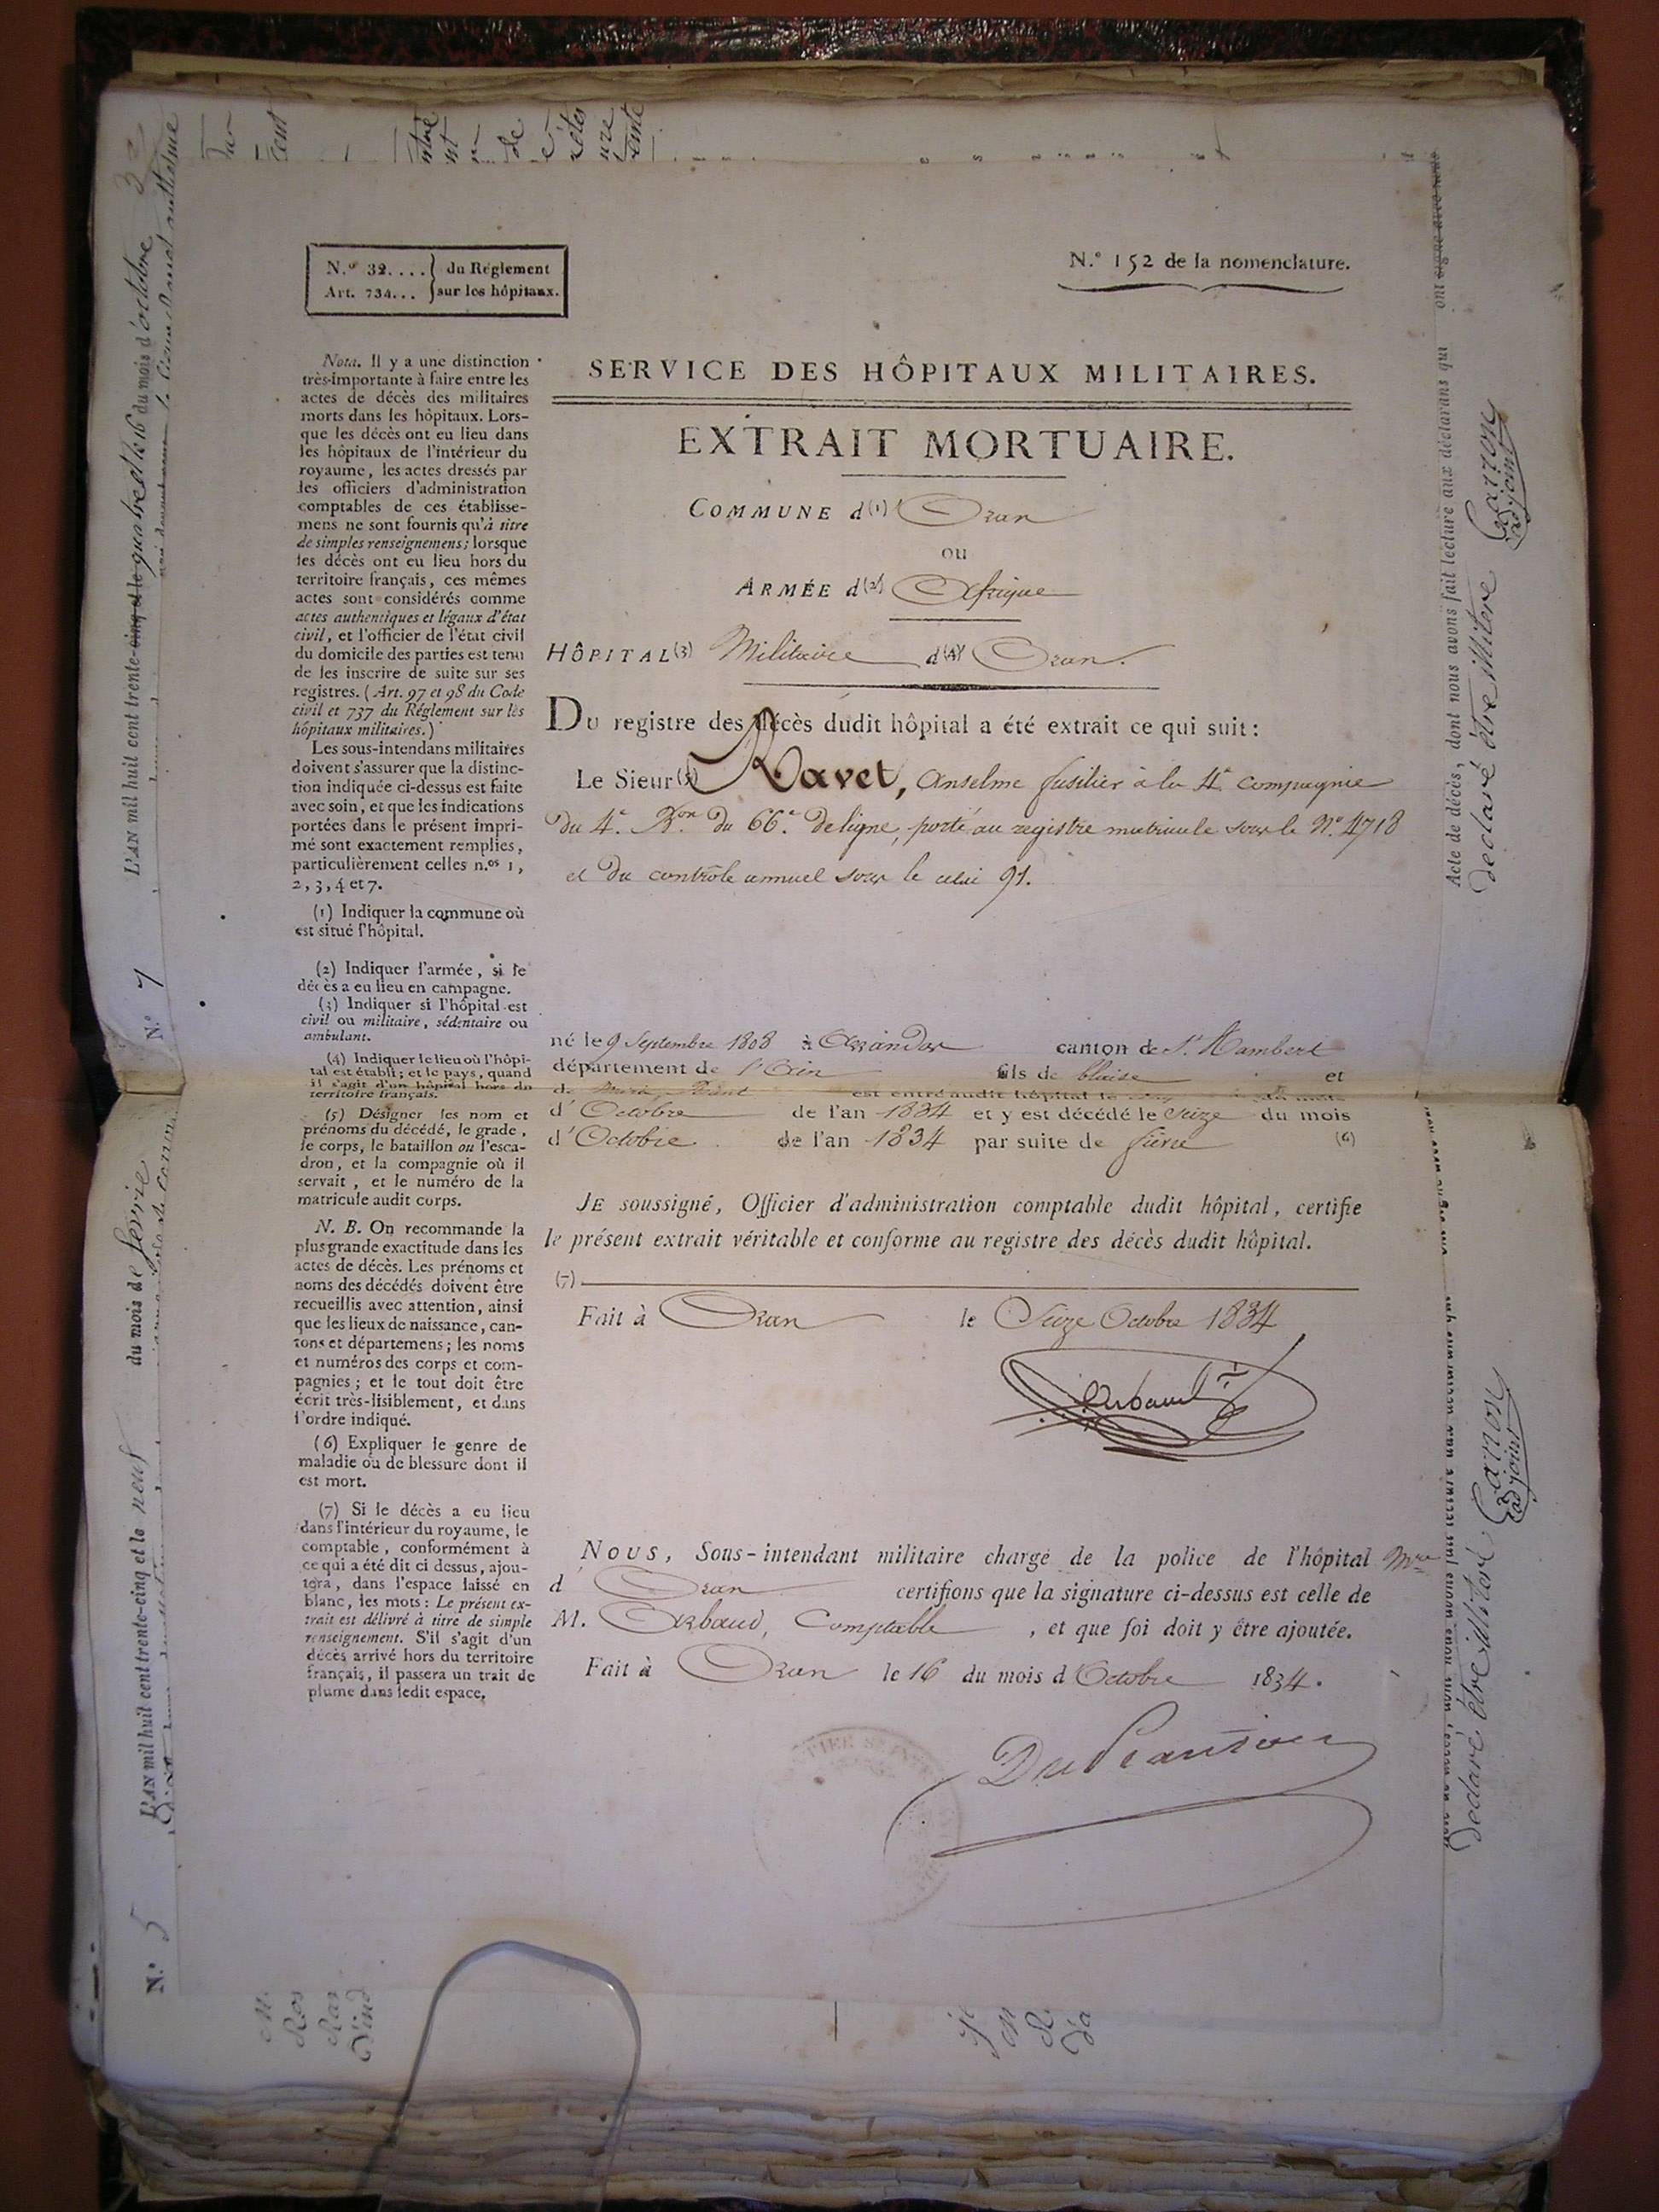 N.º 32.... du Réglement
Art. 734... sur les hôpitaux.
N.º 152 de la nomenclature.
SERVICE DES HÔPITAUX MILITAIRES.
EXTRAIT MORTUAIRE.
COMMUNE d(1) Oran
ou
ARMÉE d(2) Afrique
HÔPITAL(3) Militaire d(4) Oran.
Du registre des décès dudit hôpital a été extrait ce qui suit:
Le Sieur(5) Ravet, Anselme fusilier à la 4e compagnie
du 4e. Bon. du 66e. de ligne, porté au registre matricule sous le No. 4718
et du contrôle annuel sous le celui 91.
né le 9 Septembre 1808 à Arandas canton de St. Rambert
département de l'Ain fils de blaise et
de est entré audit hôpital le du mois
d'Octobre de l'an 1834 et y est décédé le Seize du mois
d'Octobre de l'an 1834 par suite de fièvre (6)
JE soussigné, Officier d'administration comptable dudit hôpital, certifie
le présent extrait véritable et conforme au registre des décès dudit hôpital.
(7)
Fait à Oran le Seize Octobre 1834
Arbaud
NOUS, Sous-intendant militaire chargé de la police de l'hôpital Mre
d Oran certifions que la signature ci-dessus est celle de
M. Arbaud, Comptable, et que foi doit y être ajoutée.
Fait à Oran le 16 du mois d'Octobre 1834.
Nota. Il y a une distinction
très-importante à faire entre les
actes de décès des militaires
morts dans les hôpitaux. Lors-
que les décès ont eu lieu dans
les hôpitaux de l'intérieur du
royaume, les actes dressés par
les officiers d'administration
comptables de ces établisse-
mens ne sont fournis qu'à titre
de simples renseignemens; lorsque
les décès ont eu lieu hors du
territoire français, ces mêmes
actes sont considérés comme
actes authentiques et légaux d'état
civil, et l'officier de l'état civil
du domicile des parties est tenu
de les inscrire de suite sur ses
registres. (Art. 97 et 98 du Code
civil et 737 du Réglement sur les
hôpitaux militaires.)
Les sous-intendans militaires
doivent s'assurer que la distinc-
tion indiquée ci-dessus est faite
avec soin, et que les indications
portées dans le présent impri-
mé sont exactement remplies,
particulièrement celles n.os 1,
2, 3, 4 et 7.
(1) Indiquer la commune où
est situé l'hôpital.
(2) Indiquer l'armée, si le
décès a eu lieu en campagne.
(3) Indiquer si l'hôpital est
civil ou militaire, sédentaire ou
ambulant.
(4) Indiquer le lieu où l'hôpi-
tal est établi; et le pays, quand
il s'agit d'un hôpital hors du
territoire français.
(5) Désigner les nom et
prénoms du décédé, le grade,
le corps, le bataillon ou l'esca-
dron, et la compagnie où il
servait, et le numéro de la
matricule audit corps.
N. B. On recommande la
plus grande exactitude dans les
actes de décès. Les prénoms et
noms des décédés doivent être
recueillis avec attention, ainsi
que les lieux de naissance, can-
tons et départemens; les noms
et numéros des corps et com-
pagnies; et le tout doit être
écrit très-lisiblement, et dans
l'ordre indiqué.
(6) Expliquer le genre de
maladie ou de blessure dont il
est mort.
(7) Si le décès a eu lieu
dans l'intérieur du royaume, le
comptable, conformément à
ce qui a été dit ci dessus, ajou-
tera, dans l'espace laissé en
blanc, les mots: Le présent ex-
trait est délivré à titre de simple
renseignement. S'il s'agit d'un
décès arrivé hors du territoire
français, il passera un trait de
plume dans ledit espace.
N.º 7 L'AN mil huit cent trente-cinq et le quatre et le 16 du mois d'octobre
N.º 5 L'AN mil huit cent trente-cinq et le neuf du mois de fevrie
Acte de décès, dont nous avons fait lecture aux déclarans qui ont signé avec nous
declaré être illiteré Carron
adjoint
declaré être illiteré Carron
adjoint